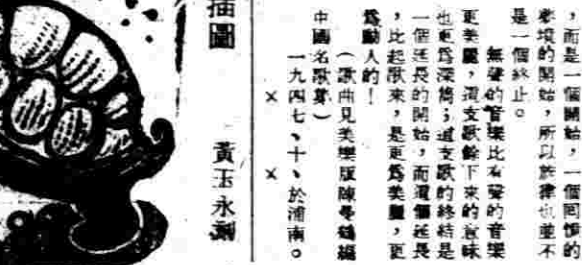 ，而是一個開始，一個回憶的
夢境的開始，所以旋律也並不
是一個終止。
無聲的音樂比有聲的音樂
更美麗，這支歌餘下來的意味
也更爲深；這支歌的終結是
一個延長的開始，而這個延長
，比起歌來，是更爲美麗，更
爲動人的！
（歌曲見美樂版陳曼鶴編
中國名歌集）
一九四七、十、於浦南。
× ×
插圖 黃玉永刻